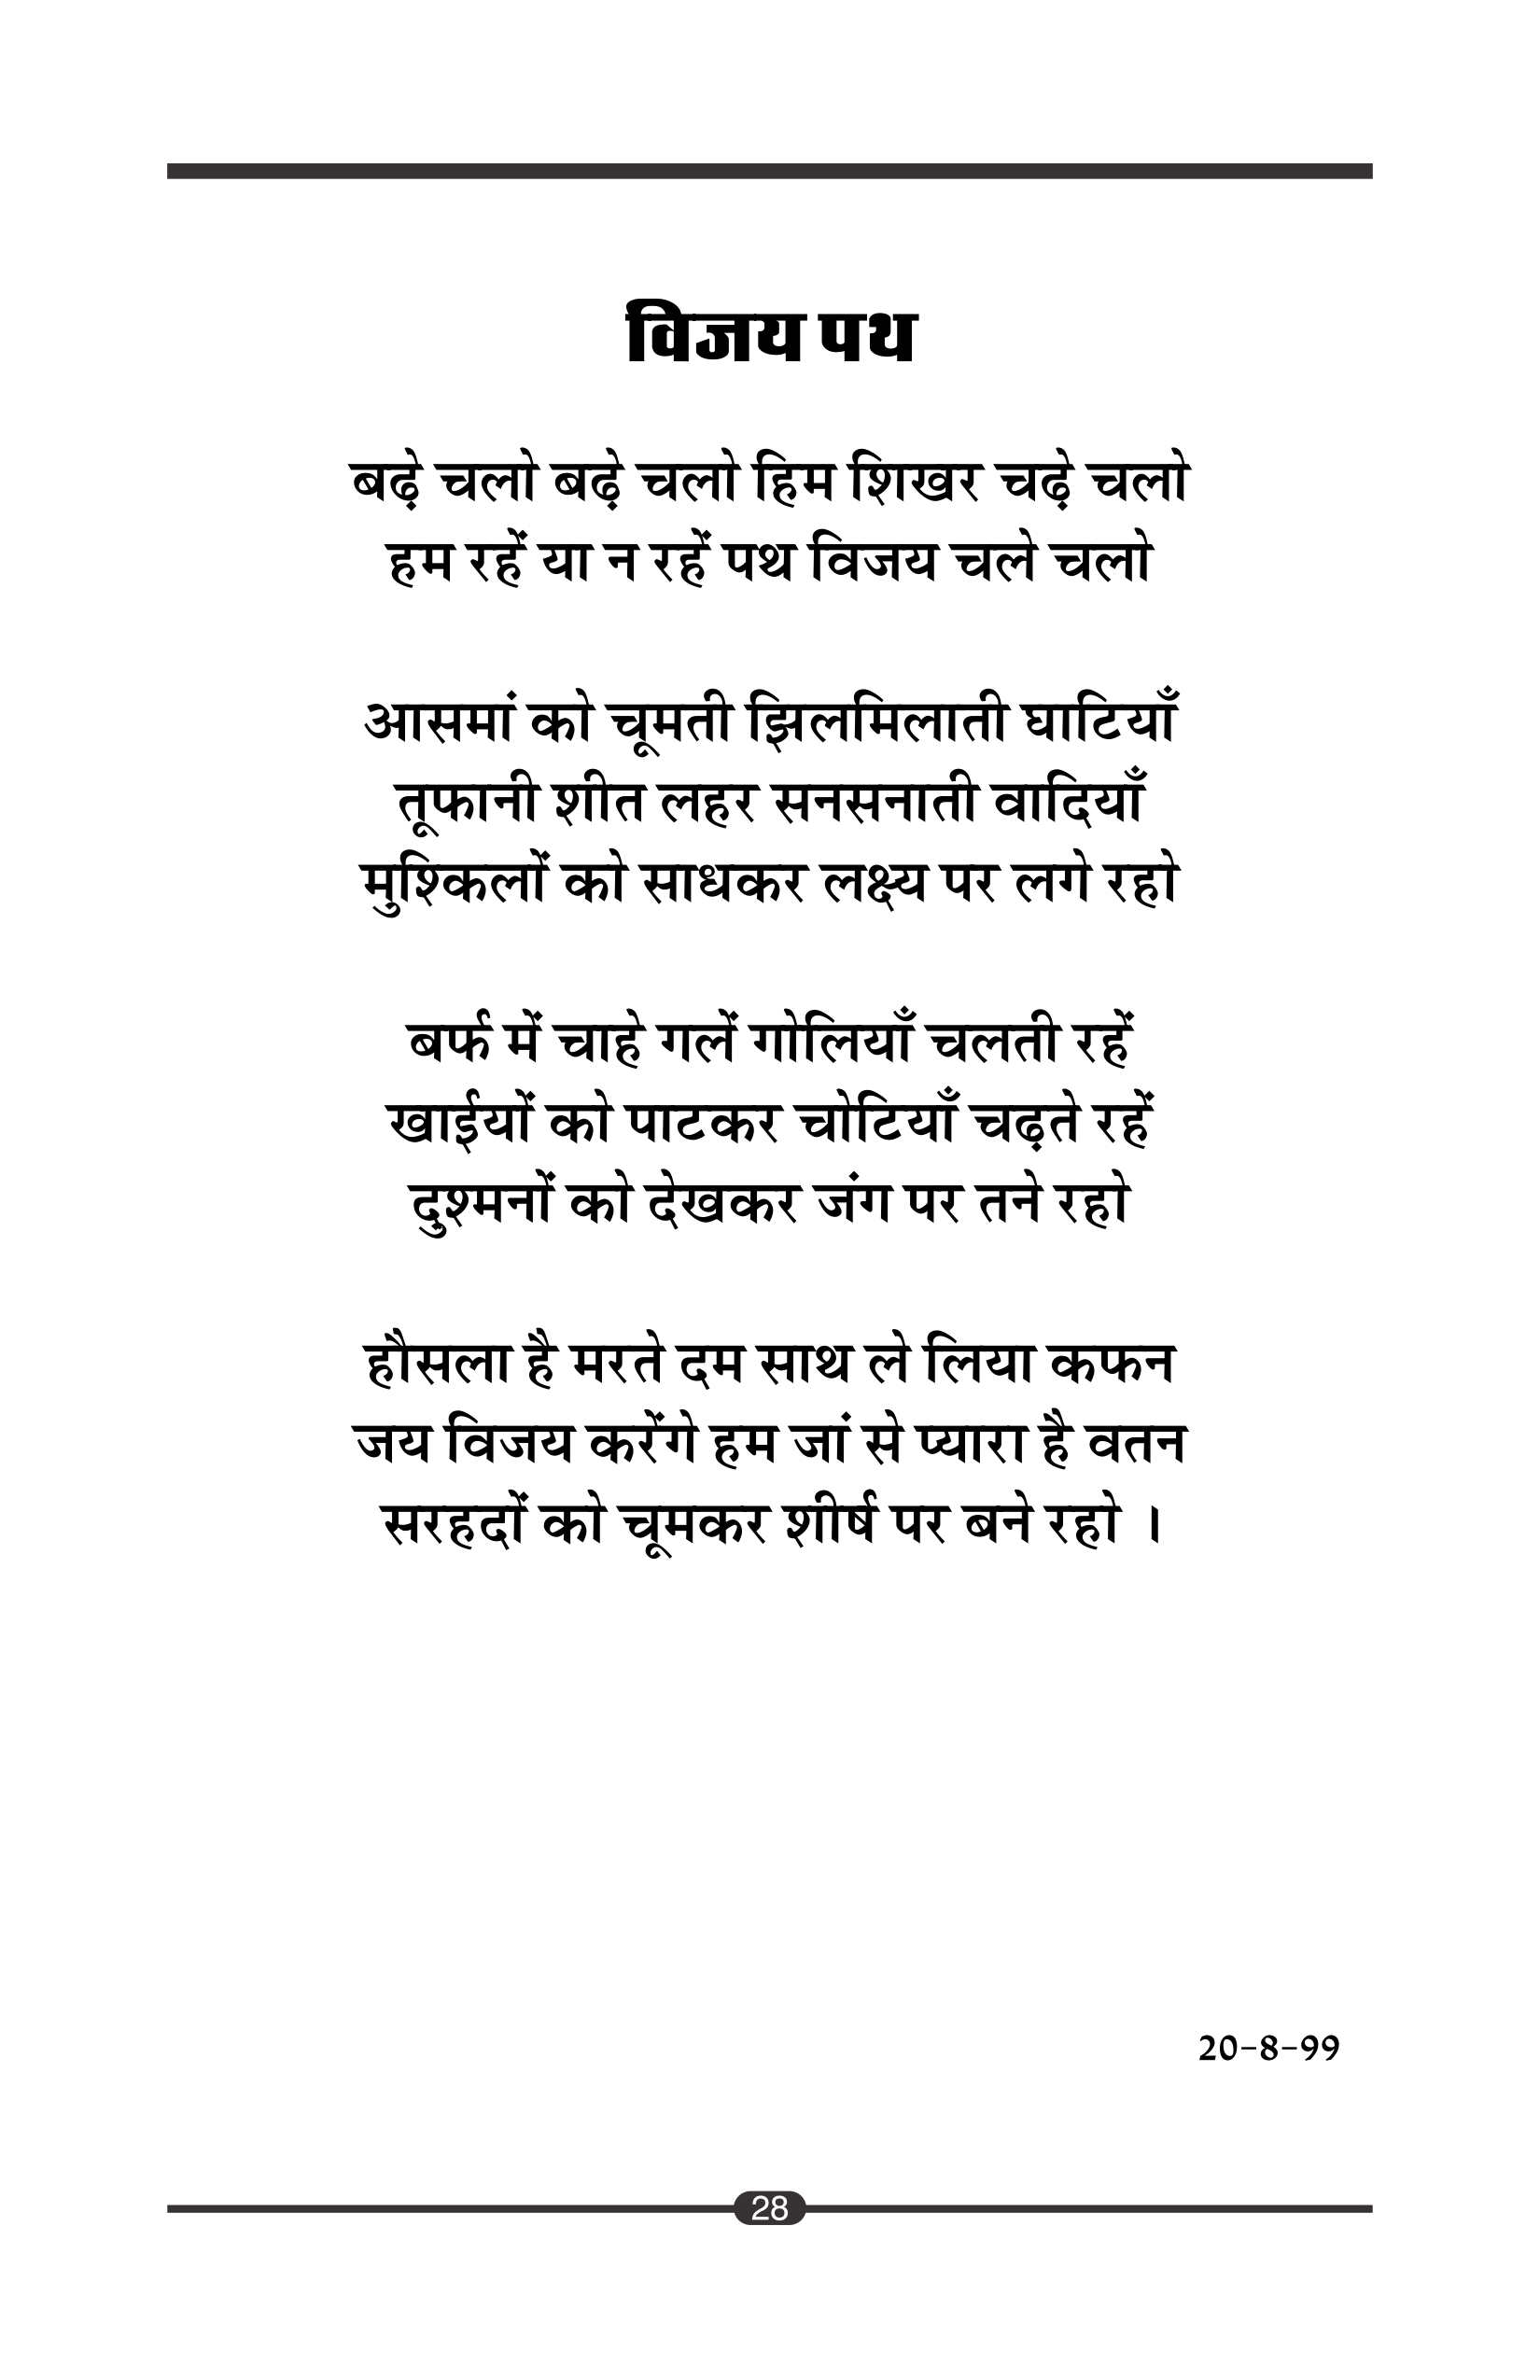 विजय पथ
बढ़े चलो बढ़े चलो हिम शिखर चढ़े चलो
हम रहें या न रहें पथ विजय चले चलो
आसमां को चूमती झिलमिलाती घाटियाँ
तूफानी शीत लहर सनसनाती वादियाँ
मुश्किलों को साधकर लक्ष्य पर लगे रहो
बर्फ में चाहे गलें गोलियाँ चलती रहें
खाईयों को पाटकर चोटियाँ चढ़ते रहें
दुश्मनों को देखकर जंग पर तने रहो
हौसला है मरते दम साथ ले लिया कफन
जय विजय करेंगे हम जां से प्यारा है वतन
सरहदों को चूमकर शीर्ष पर बने रहो ।
20-8-99
28